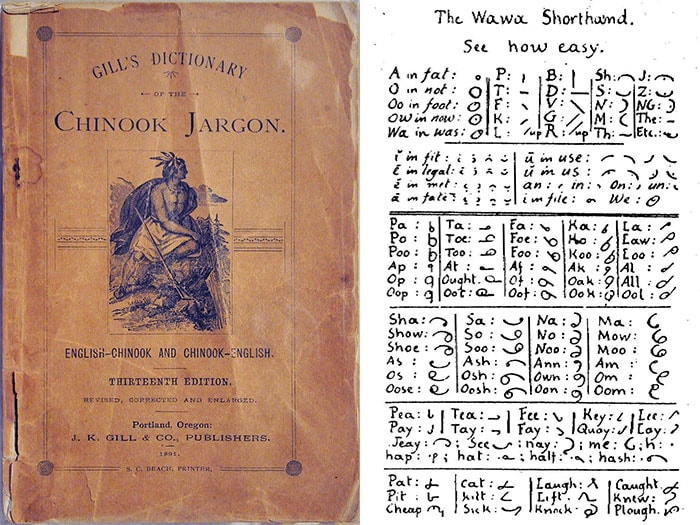 GILL'S DICTIONARY
OF THE
CHINOOK JARGON.
ENGLISH-CHINOOK AND CHINOOK-ENGLISH.
THIRTEENTH EDITION.
REVISED, CORRECTED AND ENLARGED.
Portland, Oregon:
J. K. GILL & CO., PUBLISHERS.
1891.
S. C. BEACH, PRINTER.
The Wawa Shorthand.
See how easy.
A in fat: P: B: Sh: J:
O in not: T: D: S: Z:
Oo in foot: F: V: N: NG:
Ow in now: K: G: M: The:
Wa in was: L: /up R: /up Th: Etc.:
ĭ in fit: ū in use:
ē in legal: ŭ in us:
ĕ in met: an: in: On: un:
ā in fate: i in file: We:
Pa: Ta: Fa: Ka: La:
Po: Toe: Foe: Ko: Law:
Poo: Too: Foo: Koo: Loo:
Ap: At: Af: Ak: Al:
Op: Ought. Of: Oak: All:
Oop: Oot: Oof: Ook: Ool:
Sha: Sa: Na: Ma:
Show: So: No: Mow:
Shoe: Soo: Noo: Moo:
As: Ash: Ann: Am:
Os: Osh: Own: Om:
Oose: Oosh: Oon: Oom:
Pea: Tea: Fee: Key: Lee:
Pay: Tay: Fay: Quay: Lay:
Jeay: See nay: me: h:
hap: hat: half: hash:
Pat: cat: Laugh: Caught
Pit: kilt: Lift. Knew:
Cheap Sick: Knock: Plough.